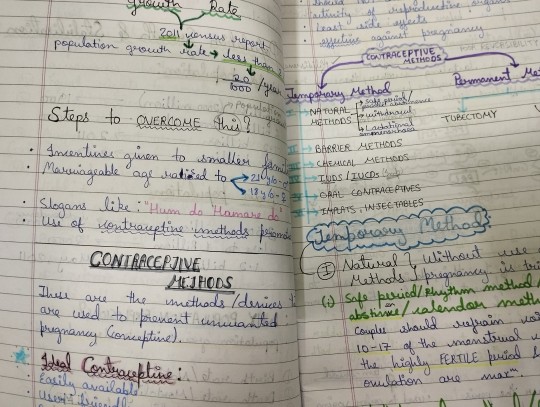 Growth Rate
2011 census report
population growth rate → less than
20/1000 /year
Steps to OVERCOME this?
• Incentives given to smaller
• Marriageable age raised to 21 y/o
18 y/o
• Slogans like: "Hum do Hamare do"
• Use of contraceptive methods
CONTRACEPTIVE
METHODS
These are the methods/devices
are used to prevent unwanted
pregnancy (conceptive).
Ideal Contraceptive:
• Easily available
• User-friendly
of reproductive
• Least side effects
• effective against pregnancy
CONTRACEPTIVE
METHODS
Temporary Method
Permanent
NATURAL METHODS
safe period/
withdrawal
Lactational
TUBECTOMY
BARRIER METHODS
CHEMICAL METHODS
IUDs/IUCDs
ORAL CONTRACEPTIVES
IMPLATS, INJECTABLES
Temporary Method
I Natural? Without use
Methods pregnancy is
(i) Safe period/Rhythm method/
abstine/calendar
Couple should refrain
10-17 of the menstrual
the highly FERTILE period
ovulation are maxm.